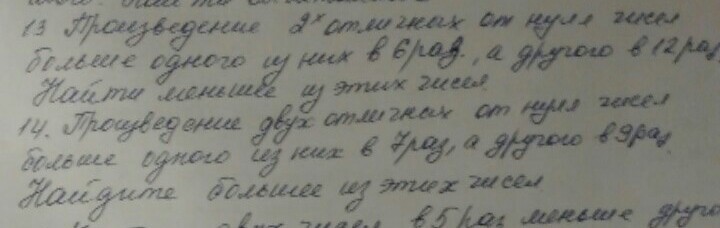 13 Произведение 2х отличных от нуля чисел
больше одного из них в 6 раз, а другого в 12 раз
Найти меньшее из этих чисел
14. Произведение двух отличных от нуля чисел
больше одного из них в 7 раз, а другого в 9 раз
Найдите большее из этих чисел
двух чисел в 5 раз меньше друго